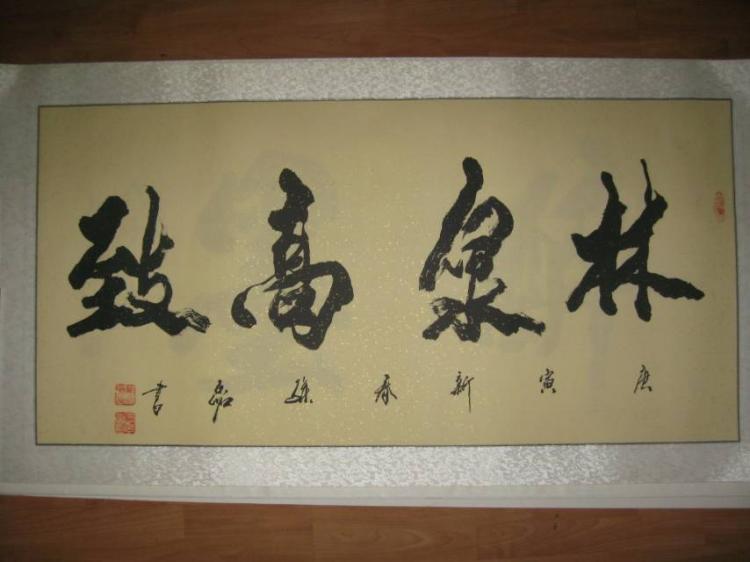 林泉高致
庚寅新春孫磊書